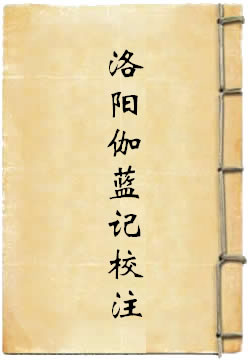 洛阳伽蓝记校注